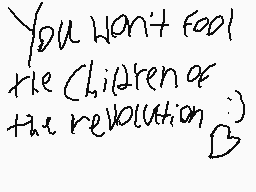 You Won't Fool
the Children of
the revolution :)